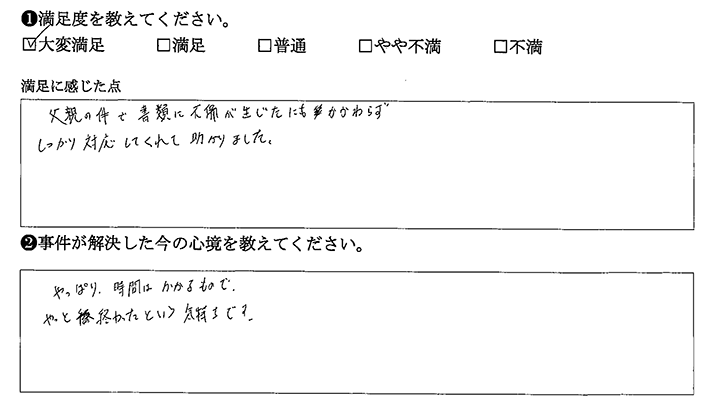 ❶満足度を教えてください。
☑大変満足 □満足 □普通 □やや不満 □不満
満足に感じた点
父親の件で書類に不備が生じたにもかかわらず
しっかり対応してくれて助かりました。
❷事件が解決した今の心境を教えてください。
やっぱり、時間はかかるもので、
やっと終わったという気持ちです。